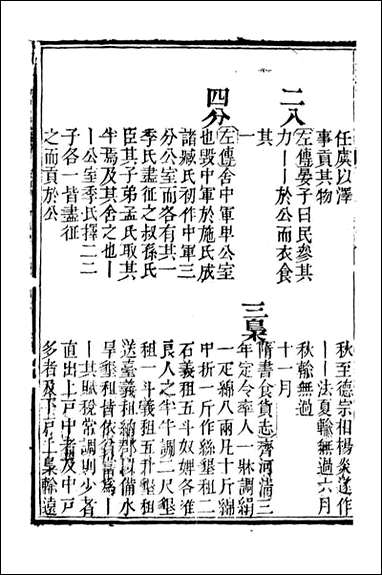 任虞以澤
事貢其物
二八
左傳晏子曰民參其
力｜｜於公而衣食
其一
四分
左傳舍中軍卑公室
也毀中軍於施氏成
諸臧氏初作中軍三
分公室而各有其一
季氏盡征之叔孫氏
臣其子弟孟氏取其
半焉及其舍之也｜
｜公室季氏擇二二
子各一皆盡征
之而貢於公
秋至德宗相楊炎遂作
｜｜法夏輸無過六月
秋輸無過
十一月
三梟
隋書食貨志齊河清三
年定令率人一牀調絹
一疋綿八兩凡十斤綿
中折一斤作絲墾租二
石義租五斗奴婢各准
良人之半牛調二尺墾
租一斗義租五升墾租
送臺義租納郡以備水
旱墾租皆依貧富為｜
｜其賦稅常調則少者
直出上戶中者及中戶
多者及下戶上梟輸遠